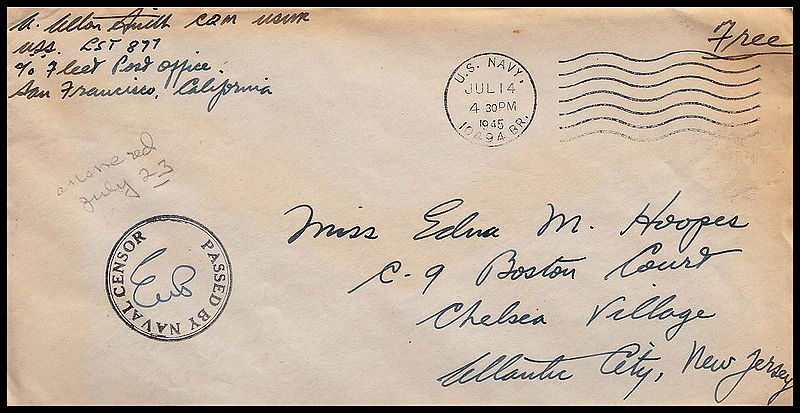 A. Alton Smith CQM USNR
USS. LST 877
c/o Fleet Post Office
San Francisco, California
Free
U.S. NAVY.
JUL 14
4 30 PM
1945
10494 BR.
answered
July 23
PASSED BY NAVAL CENSOR
Miss Edna M. Hoopes
C-9 Boston Court
Chelsea Village
Atlantic City, New Jersey